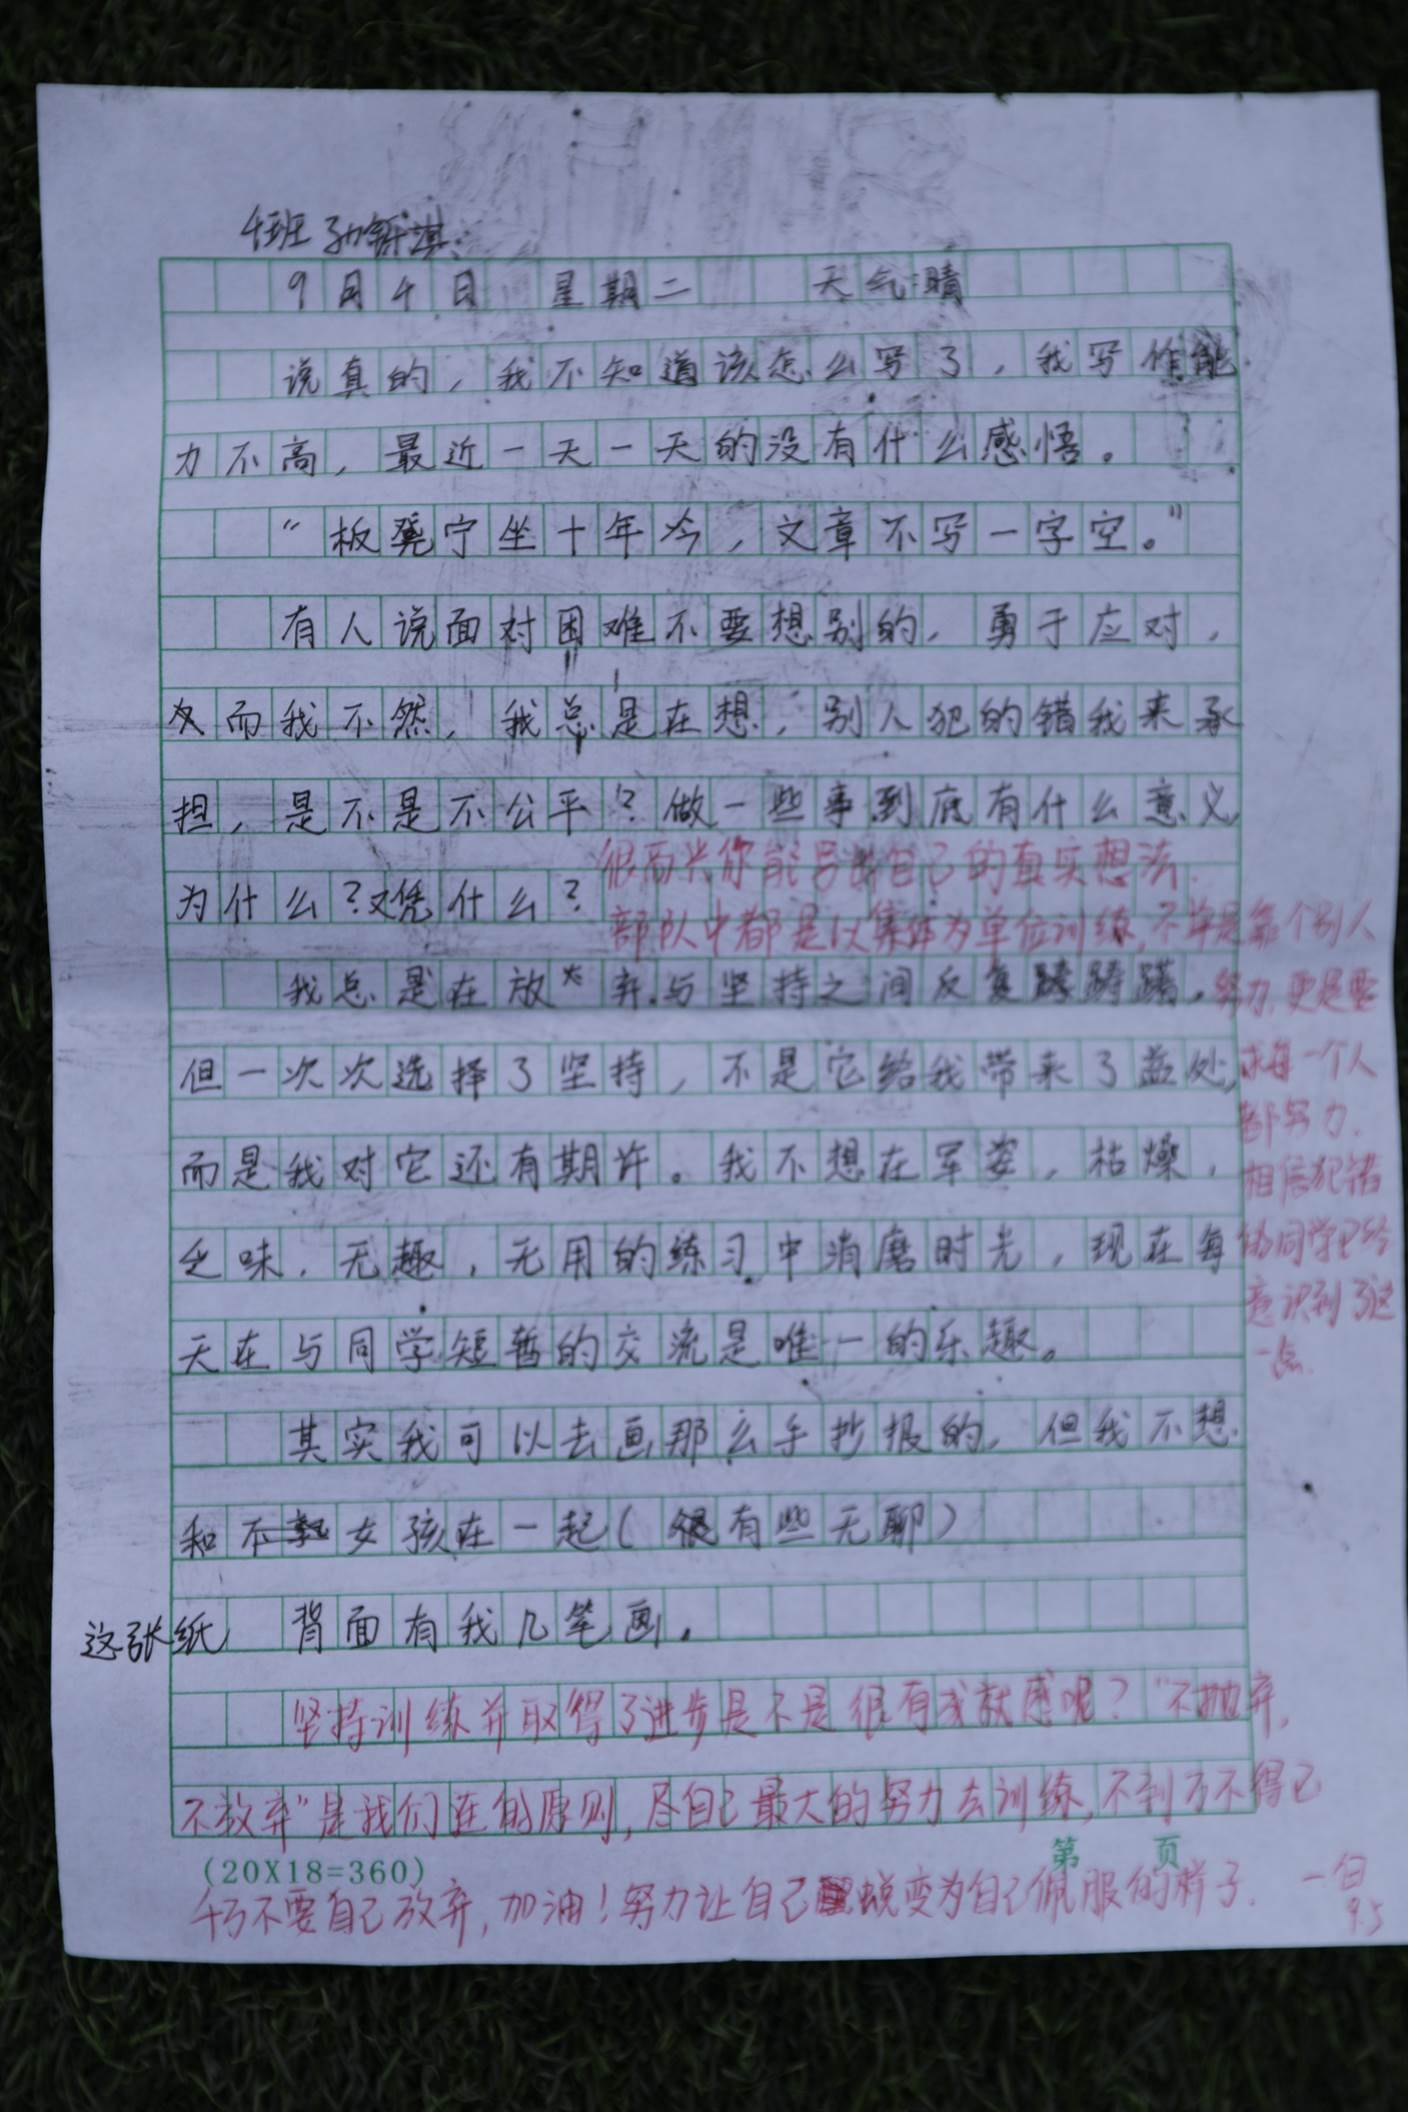 4班 孙钰淇
9月4日 星期二 天气:晴
说真的，我不知道该怎么写了，我写作能
力不高，最近一天一天的没有什么感悟。
“板凳宁坐十年冷，文章不写一字空。”
有人说面对困难不要想别的，勇于应对，
反而我不然，我总是在想，别人犯的错我来承
担，是不是不公平？做一些事到底有什么意义，
为什么？又凭什么？
很高兴你能写出自己的真实想法.
部队中都是以集体为单位训练,不单是靠个别人
努力,更是要
求每一个人
都努力.
相信犯错
的同学已经
意识到了这
一点.
我总是在放弃与坚持之间反复踌躇，
但一次次选择了坚持，不是它给我带来了益处，
而是我对它还有期许。我不想在军姿，枯燥，
乏味，无趣，无用的练习中消磨时光，现在每
天在与同学短暂的交流是唯一的乐趣。
其实我可以去画那么手抄报的，但我不想
和不熟女孩在一起(很有些无聊)
这张纸 背面有我几笔画。
坚持训练并取得了进步是不是很有成就感呢？“不抛弃,
不放弃”是我们连的原则,尽自己最大的努力去训练,不到万不得已
第 页
(20X18=360)
千万不要自己放弃,加油！努力让自己蜕变为自己佩服的样子. 一白
9.5